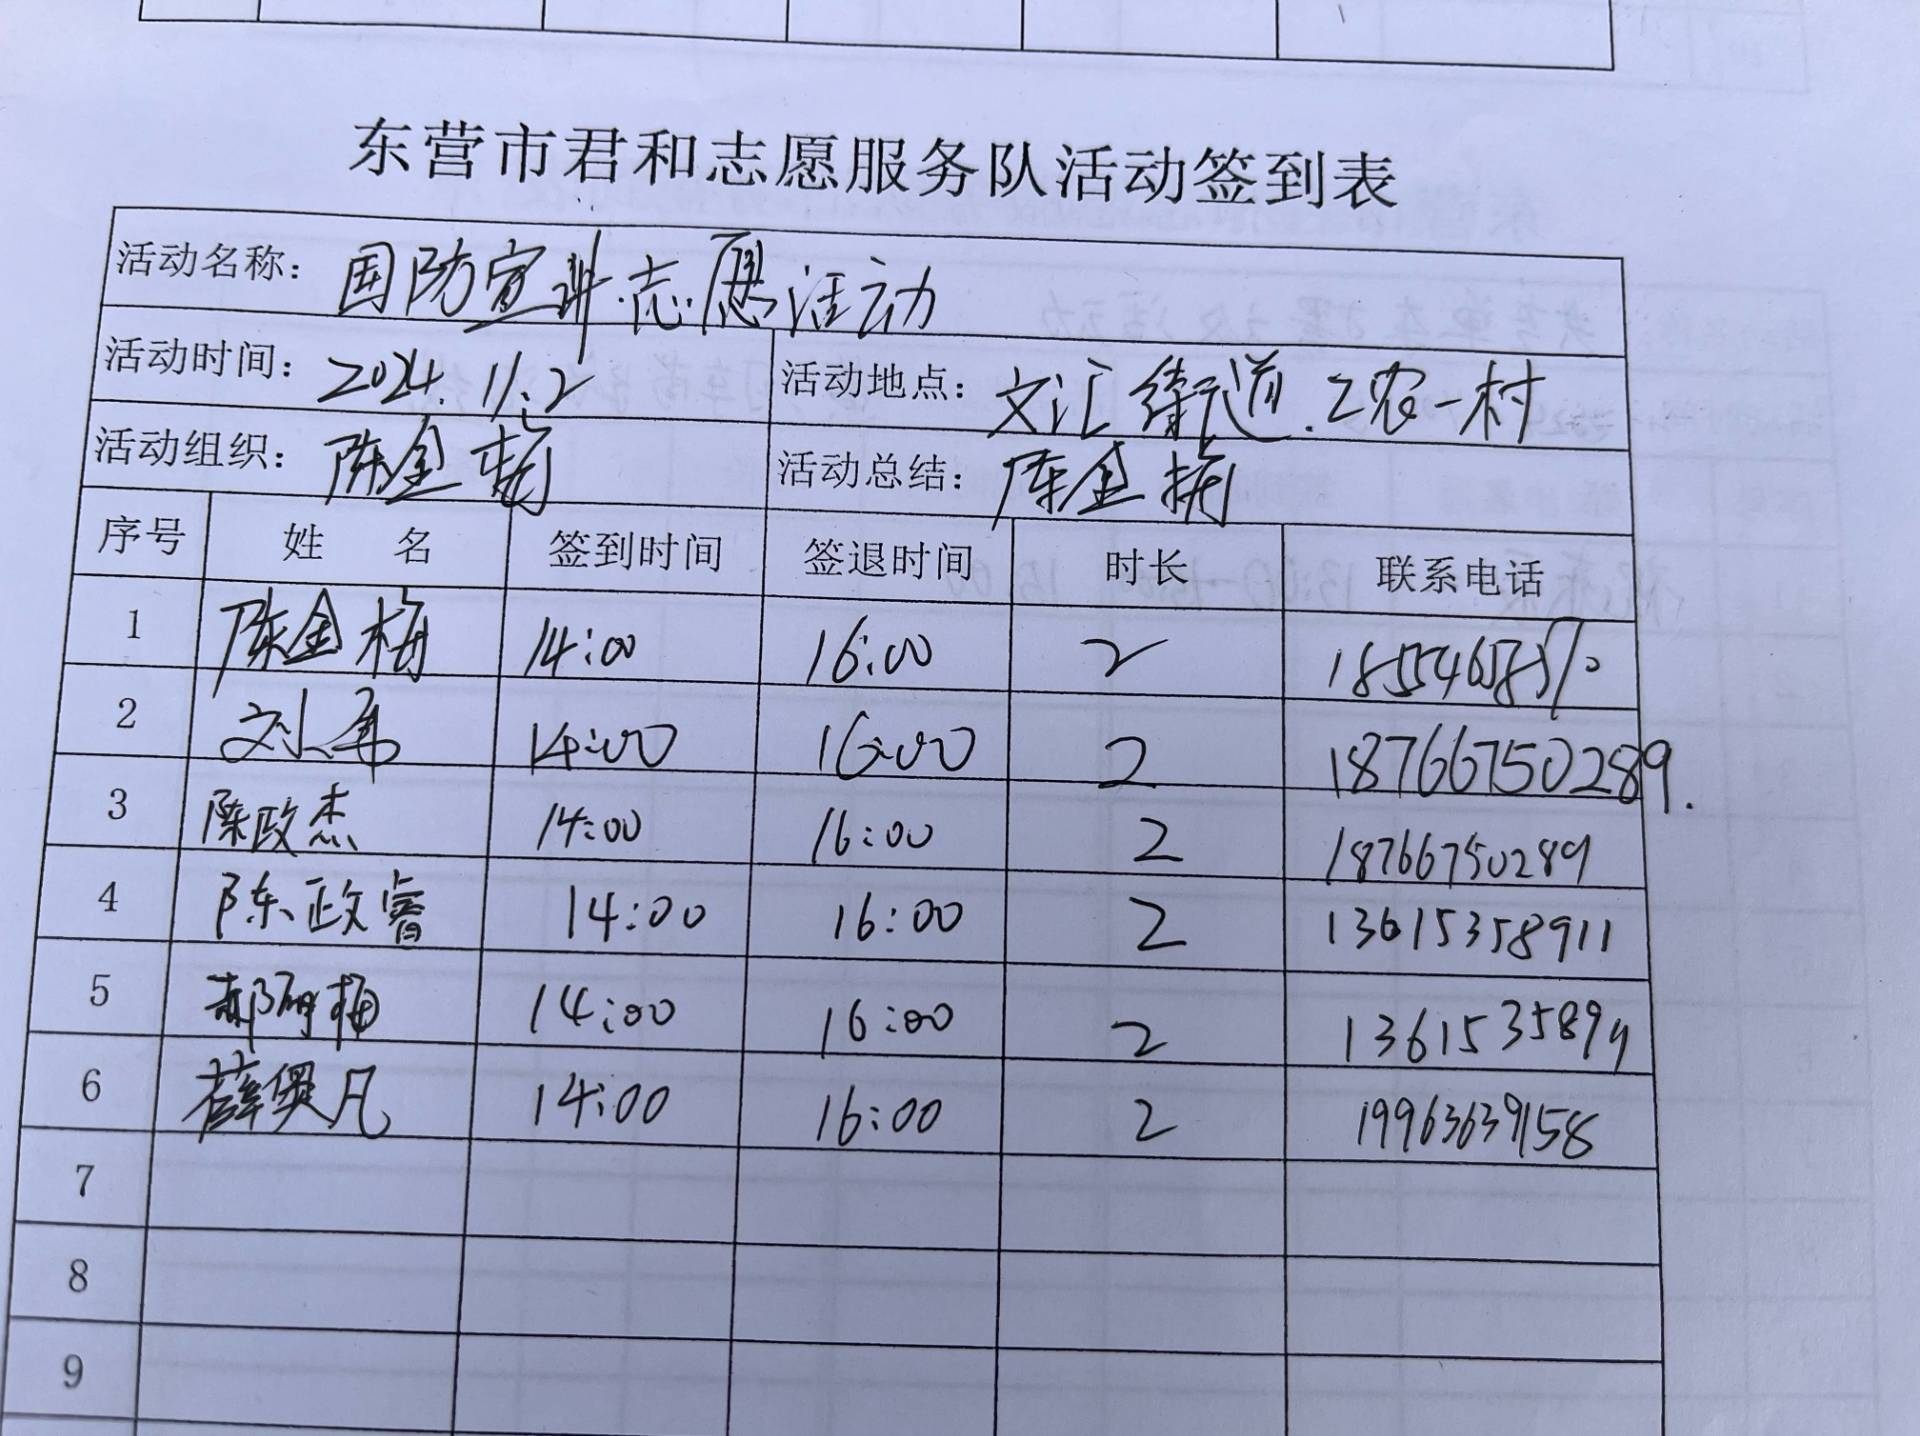 东营市君和志愿服务队活动签到表
活动名称: 国防宣讲志愿活动
活动时间: 2024.11.2 活动地点: 文汇街道.工农一村
活动组织: 陈金梅 活动总结: 陈金梅
序号 姓 名 签到时间 签退时间 时长 联系电话
1 陈金梅 14:00 16:00 2
2 刘 14:00 16:00 2 18766750289.
3 陈政杰 14:00 16:00 2 18766750289
4 陈政睿 14:00 16:00 2 13615358911
5 郝 梅 14:00 16:00 2
6 薛 凡 14:00 16:00 2 19963639158
7
8
9